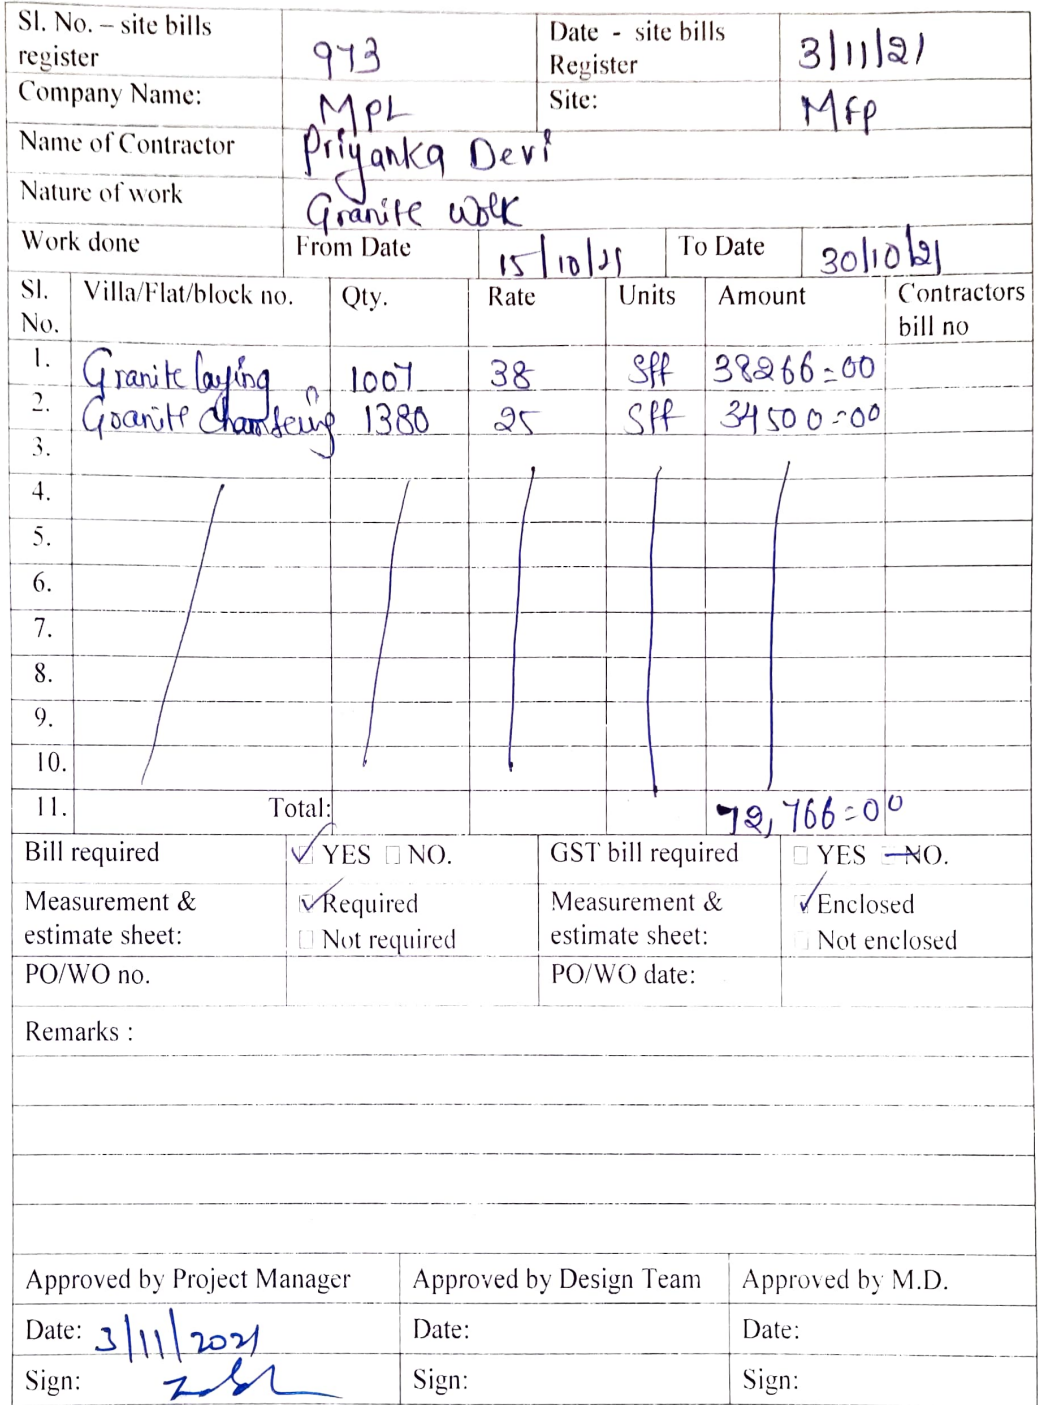 Sl. No. – site bills register 973 Date - site bills Register 3/11/21
Company Name: MPL Site: MFP
Name of Contractor Priyanka Devi
Nature of work Granite work
Work done From Date 15/10/21 To Date 30/10/21
Sl. No. Villa/Flat/block no. Qty. Rate Units Amount Contractors bill no
1. Granite laying 1007 38 Sff 38266=00
2. Granite Chamfeing 1380 25 Sff 34500=00
3.
4.
5.
6.
7.
8.
9.
10.
11. Total: 72,766=00
Bill required YES NO. GST bill required YES NO.
Measurement & estimate sheet: Required Not required Measurement & estimate sheet: Enclosed Not enclosed
PO/WO no. PO/WO date:
Remarks :
Approved by Project Manager Approved by Design Team Approved by M.D.
Date: 3/11/2021 Date: Date:
Sign: Sign: Sign: